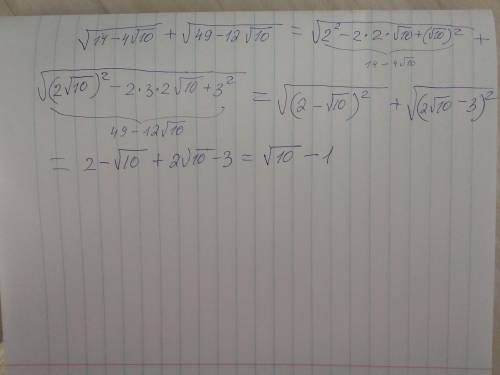 √(14-4√10) + √(49-12√10) = √(2² - 2·2·√10 + (√10)²) +
14-4√10
√((2√10)² - 2·3·2√10 + 3²) = √((2-√10)²) + √((2√10-3)²)
49-12√10
= 2-√10 + 2√10-3 = √10 - 1